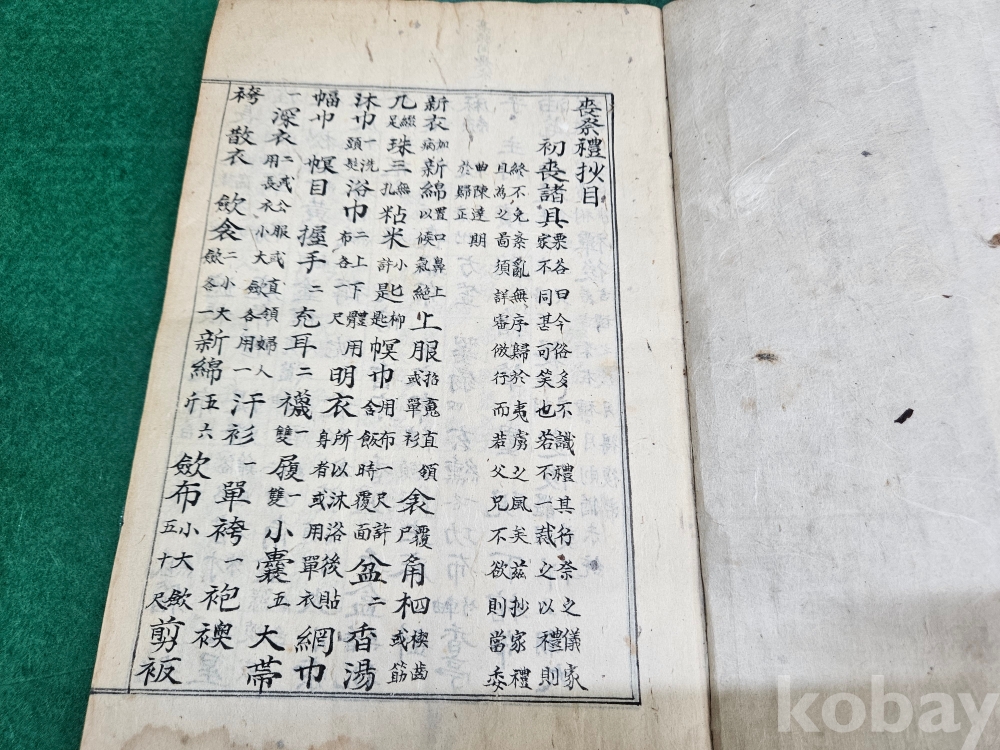 喪祭禮抄目
初喪諸具栗谷曰今俗多不識禮其行祭之儀家
家不同甚可笑也若不一裁之以禮則
終不免紊亂無序歸於夷虜之風矣茲抄家禮
且為之圖須詳審倣行而若父兄不欲則當委
曲陳達期
於歸正
新衣加病新綿置口鼻上以候氣絶上服招䰟直領或單衫衾覆尸角柶楔齒或筯
几綴足珠三無孔粘米小許匙匕柳匙幎巾用布一尺許含飯時覆面盆二香湯
沐巾一洗頭髮浴巾二上下體用布各一尺明衣所以沐浴後貼身者或用單衣網巾
幅巾一幎目握手二充耳二襪一雙履一雙小囊五大帶
深衣二或公服或直領婦人用長衣小大斂各用一汗衫單袴一袍襖
袴散衣斂衾二小大斂各一新綿五六斤斂布小大斂五十尺剪板
kobay